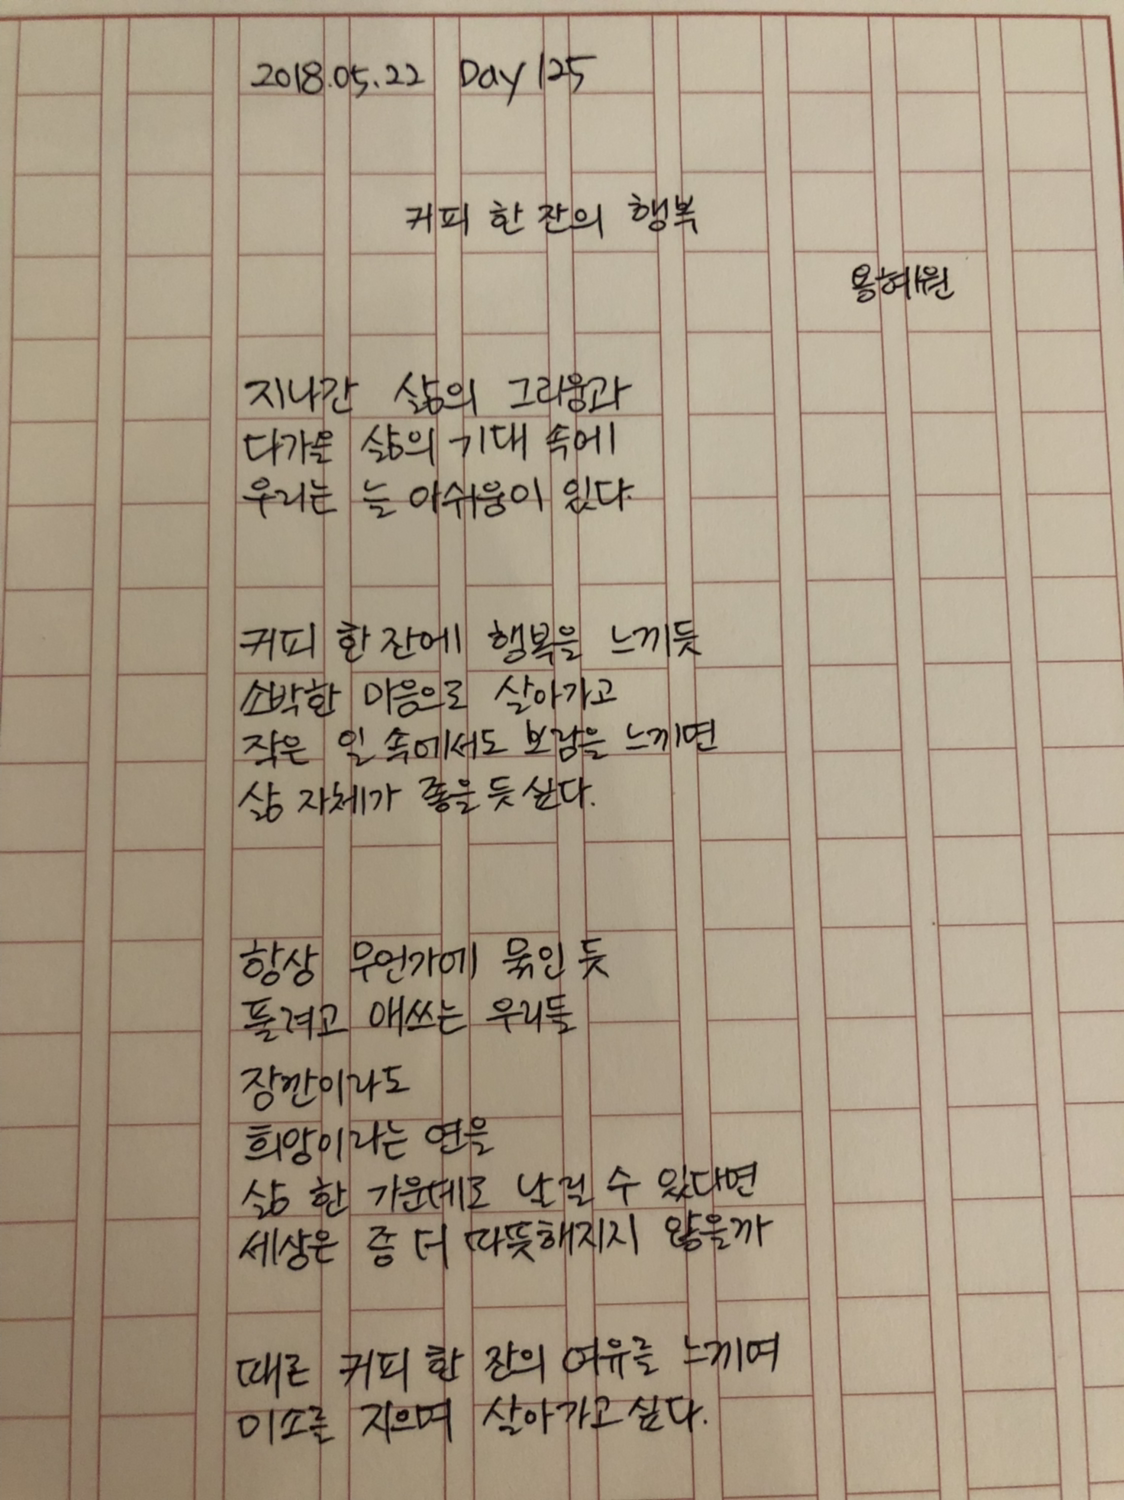 2018.05.22 Day 125
커피 한 잔의 행복
용혜원
지나간 삶의 그리움과
다가올 삶의 기대 속에
우리는 늘 아쉬움이 있다.
커피 한 잔에 행복을 느끼듯
소박한 마음으로 살아가고
작은 일 속에서도 보람을 느끼면
삶 자체가 좋을 듯 싶다.
항상 무언가에 묶인 듯
풀려고 애쓰는 우리들
잠깐이라도
희망이라는 연을
삶 한 가운데로 날릴 수 있다면
세상은 좀 더 따뜻해지지 않을까
때론 커피 한 잔의 여유를 느끼며
미소를 지으며 살아가고 싶다.